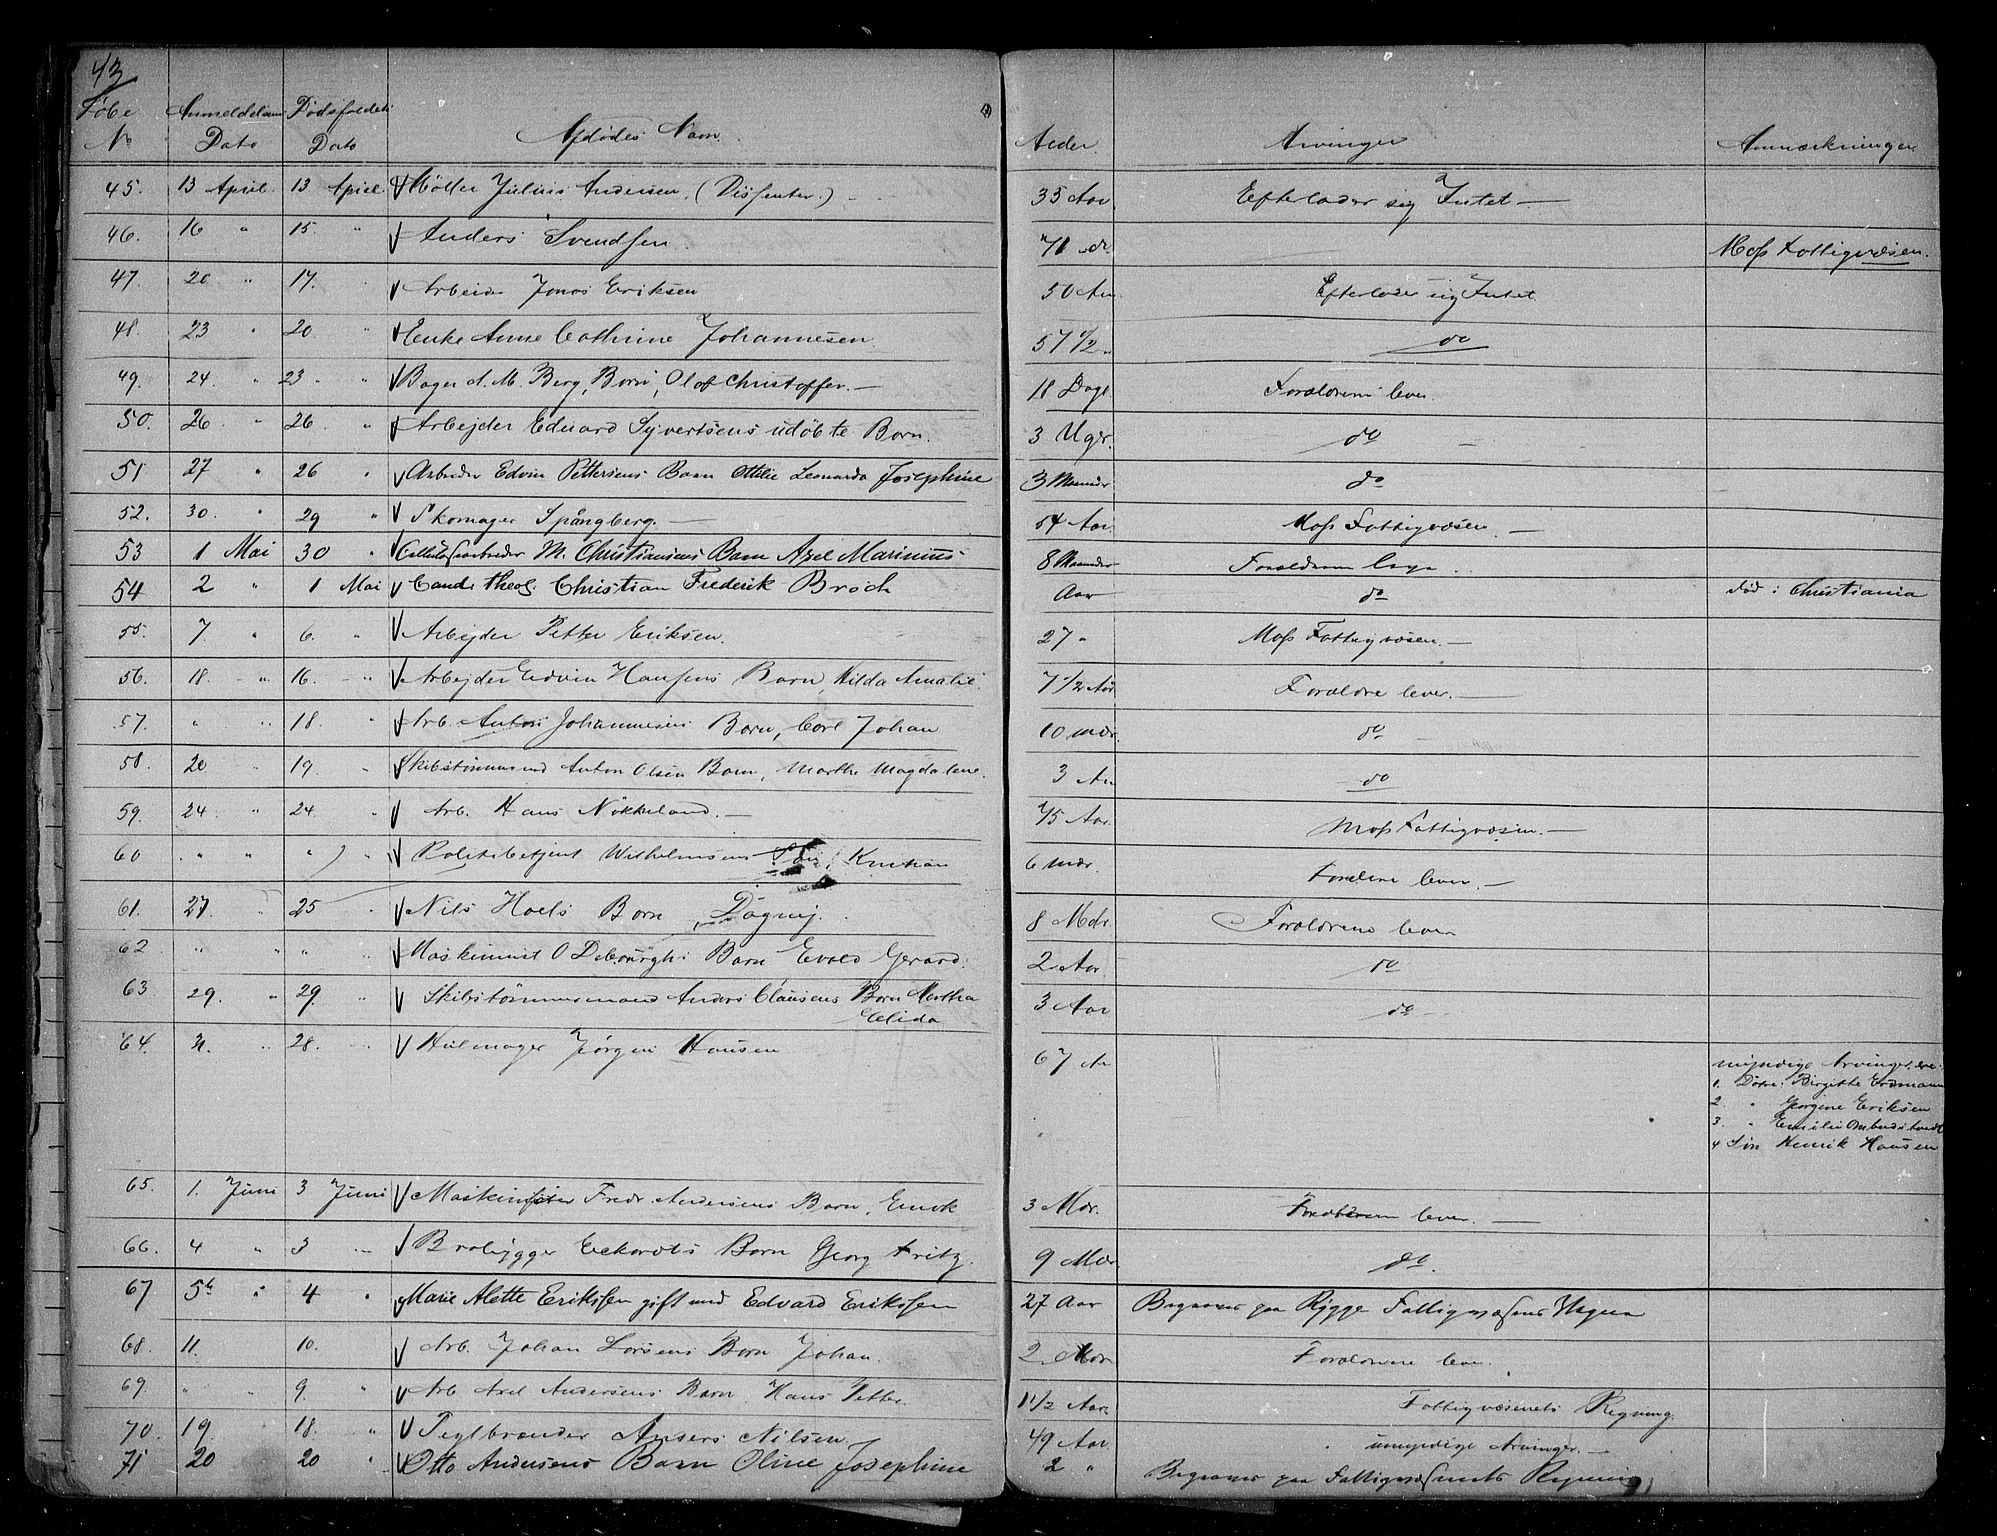 43
Løbe No Anmeldelsens Dato Dødsfaldets Dato Afdødes Navn Alder. Arvinger Anmærkninger
45. 13 April. 13 April Møller Julius Andersen, (Dissenter.) 35 Aar Efterlader sig Intet —
46. 16 " 15. " Anders Svendsen. 71 Moss Fattigvæsen.
47. 20 " 17. Arbeider Jonas Eriksen 50 Aar Efterlader sig Intet.
48. 23 " 20. " Enke Anne Cathrine Johannesen. 57 1/2 " do
49. 24. " 23 " Bager A. M. Berg, Barn, Olaf Christoffer. — 18 Dage Forældrene lever.
50. 26 " 26. " Arbejder Eduard Syvertsens udøbte Barn. 3 Uger. do —
51 27 " 26 " Arbeider Edvin Pettersens Barn Ottilie Leonarda Josephine 3 Maaneder do
52. 30. " 29 " Skomager Spångberg. — 54 Aar Moss Fattigvæsen. —
53 1 Mai 30 " M. Christiansens Barn Axel Marinius 8 Maaneder Forældrene leve.
54 2 " 1 Mai Cand. theol. Christian Frederik Broch Aar do Død i Christiania
55. 7 " 6. " Arbejder Petter Eriksen. 27 " Moss Fattigvæsen. —
56. 18. " 16. " Arbejder Edvin Hansens Barn, Hilda Amalie. 7 1/2 Aar Forældre lever. —
57. " " 18. " Arb. Anton Johannesens Barn, Carl Johan 10 Mdr. do
58. 20 " 19. " Skibstømmermand Anton Olsens Barn, Marthe Magdalene. 3 Aar do
59. 24 " 24. " Arb. Hans Nøkkeland. — 75 Aar. Moss Fattigvæsen. —
60 " " " " Politibetjent Wilhelmsens Søn, 6 Mdr. Forældrene lever. —
61. 27. " 25 " Nils Hoels Barn, Dagny. 8 Mdr. Forældrene lever
62 " " " " Maskinist O Barn Evald Gerard. 2 Aar. do
63 29. " 29 " Skibstømmermand Anders Clausens Barn Martha
Elida 3 Aar do
64. 31. " 28. " Hulmager Jørgen Hansen 67 Aar myndige Arvinger, ere:
1. Datter: Birgitte Erdmann
2. " Georgine Eriksen
3. " Emilie
4 Søn Henrik Hansen
65. 1. Juni 3 Juni Fredr. Andersens Barn, 3 Mdr. Forældrene lever. —
66. 4 " 3 " Brolegger Eckardts Barn Georg Fritz. 9 Mdr. do.
67 5te " 4 " Marie Alette Erikssen gift med Edvard Erikssen 27 Aar Begraves paa Rygge Fattigvæsens Regnin
68. 11. 10. Arb. Johan Larsens Barn Johan. 2 Mdr. Forældrene lever.
69. " " 9. " Arb. Axel Andersens Barn Hans Petter. 1 1/2 Aar. Fattigvæsenets Regning.
70. 19. 18. " Teglbrænder Anders Nilsen 49 Aar. umyndige Arvinger. —
71 20 20 " Otto Andersens Barn Oline Josephine 2 " Begraves paa Fattigvæsenets Regning